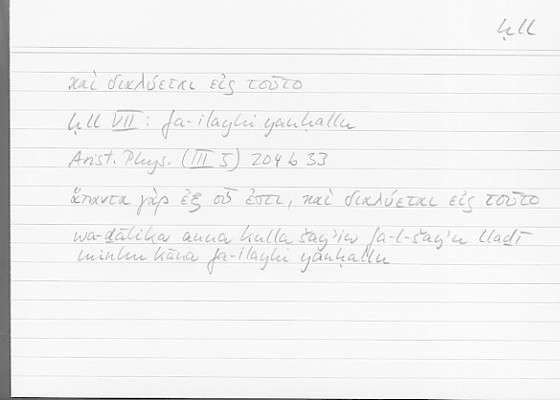 ḥll
καὶ διαλύεται εἰς τοῦτο
ḥll VII: fa-ilayhi yanḥallu
Arist. Phys. (III 5) 204 b 33
ἅπαντα γὰρ ἐξ οὗ ἐστι, καὶ διαλύεται εἰς τοῦτο
wa-ḏālika anna kulla šayʾin fa-l-šayʾu llaḏī
minhu kāna fa-ilayhi yanḥallu